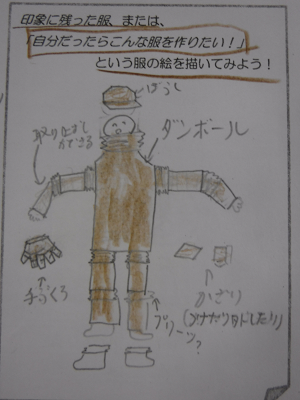 印象に残った服、または、
「自分だったらこんな服を作りたい!」
という服の絵を描いてみよう!
ぼうし
ダンボール
取りはずし
ができる
手ぶくろ
かざり
プリーツ?